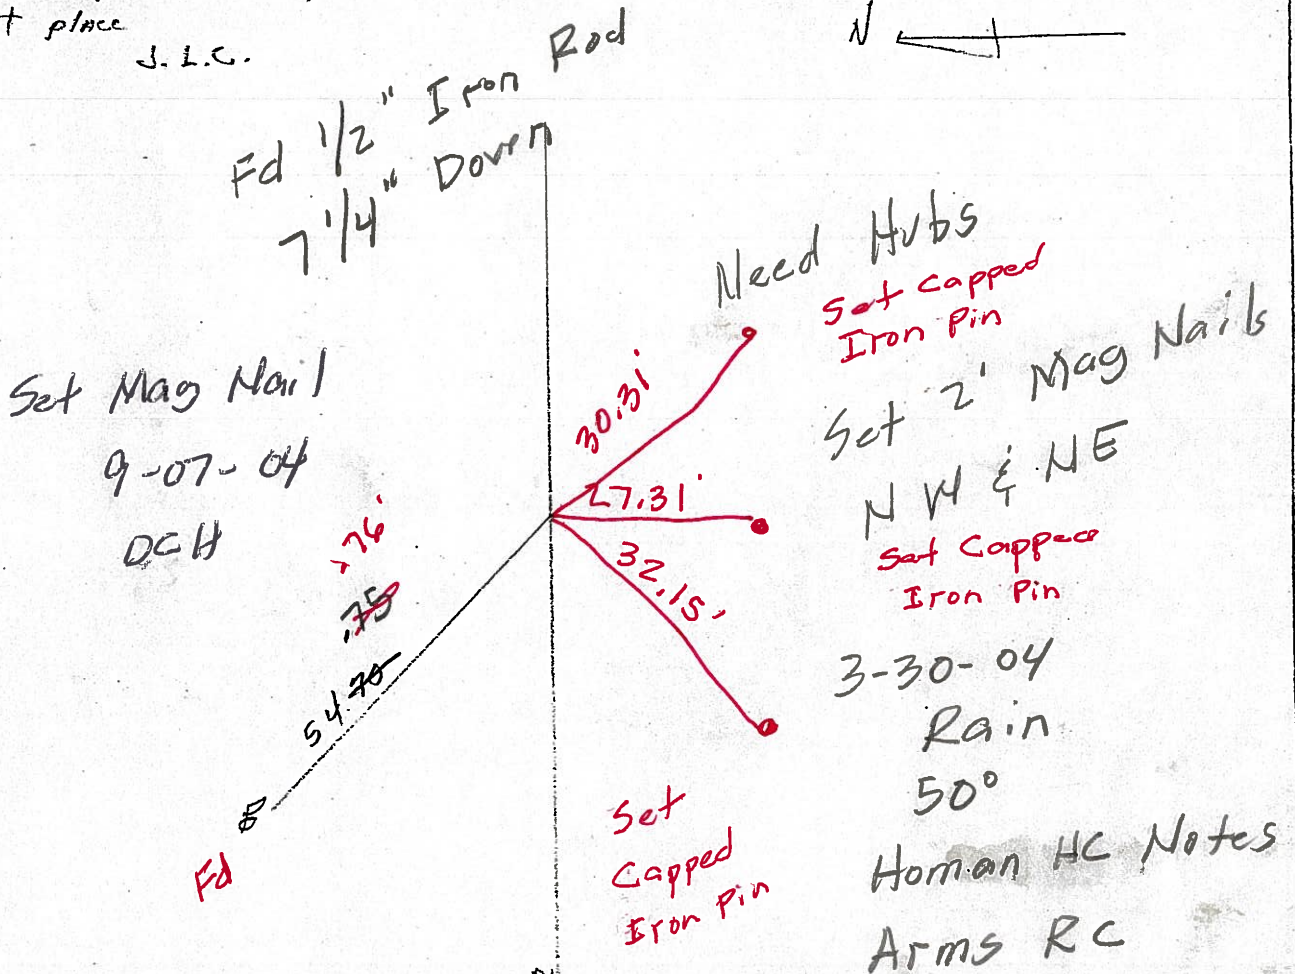 + place
J.L.C.
N
Fd 1/2" Iron Rod
7 1/4" Down
Need Hubs
Set Capped
Iron Pin
Set 2' Mag Nails
NW & NE
Set Capped
Iron Pin
Set Mag Nail
9-07-04
DCH
30.31'
27.31'
32.15'
.76'
.75
54.70
Fd
3-30-04
Rain
50°
Homan HC Notes
Arms RC
Set
Capped
Iron Pin